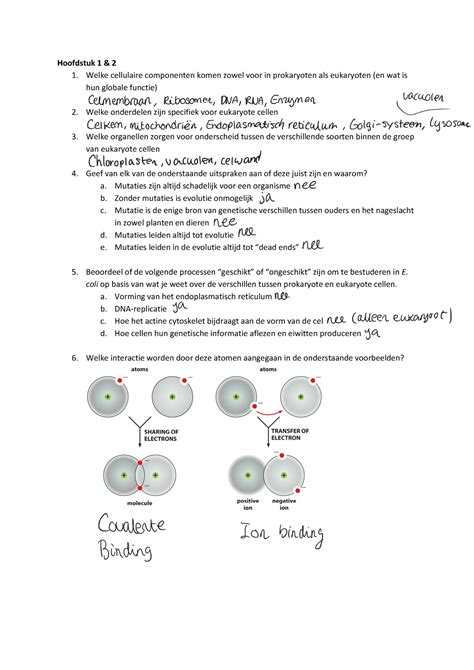 Hoofdstuk 1 & 2
1. Welke cellulaire componenten komen zowel voor in prokaryoten als eukaryoten (en wat is
hun globale functie)
Celmembraan, Ribosomen, DNA, RNA, Enzymen
vacuolen
2. Welke onderdelen zijn specifiek voor eukaryote cellen
Celkern, mitochondriën, Endoplasmatisch reticulum, Golgi-systeem, Lysosome
3. Welke organellen zorgen voor onderscheid tussen de verschillende soorten binnen de groep
van eukaryote cellen
Chloroplasten, vacuolen, celwand
4. Geef van elk van de onderstaande uitspraken aan of deze juist zijn en waarom?
a. Mutaties zijn altijd schadelijk voor een organisme nee
b. Zonder mutaties is evolutie onmogelijk ja
c. Mutatie is de enige bron van genetische verschillen tussen ouders en het nageslacht
in zowel planten en dieren nee
d. Mutaties leiden altijd tot evolutie nee
e. Mutaties leiden in de evolutie altijd tot “dead ends” nee
5. Beoordeel of de volgende processen “geschikt” of “ongeschikt” zijn om te bestuderen in E.
coli op basis van wat je weet over de verschillen tussen prokaryote en eukaryote cellen.
a. Vorming van het endoplasmatisch reticulum nee
b. DNA-replicatie ja
c. Hoe het actine cytoskelet bijdraagt aan de vorm van de cel nee (alleen eukaryoot)
d. Hoe cellen hun genetische informatie aflezen en eiwitten produceren ja
6. Welke interactie worden door deze atomen aangegaan in de onderstaande voorbeelden?
atoms atoms
SHARING OF
ELECTRONS
TRANSFER OF
ELECTRON
molecule
positive
ion
negative
ion
Covalente
Binding
Ion binding